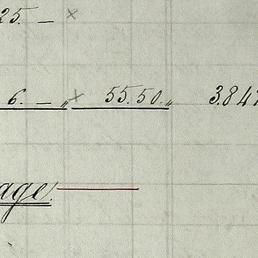 25. —
6. — „ 55.50. „ 3.847
age